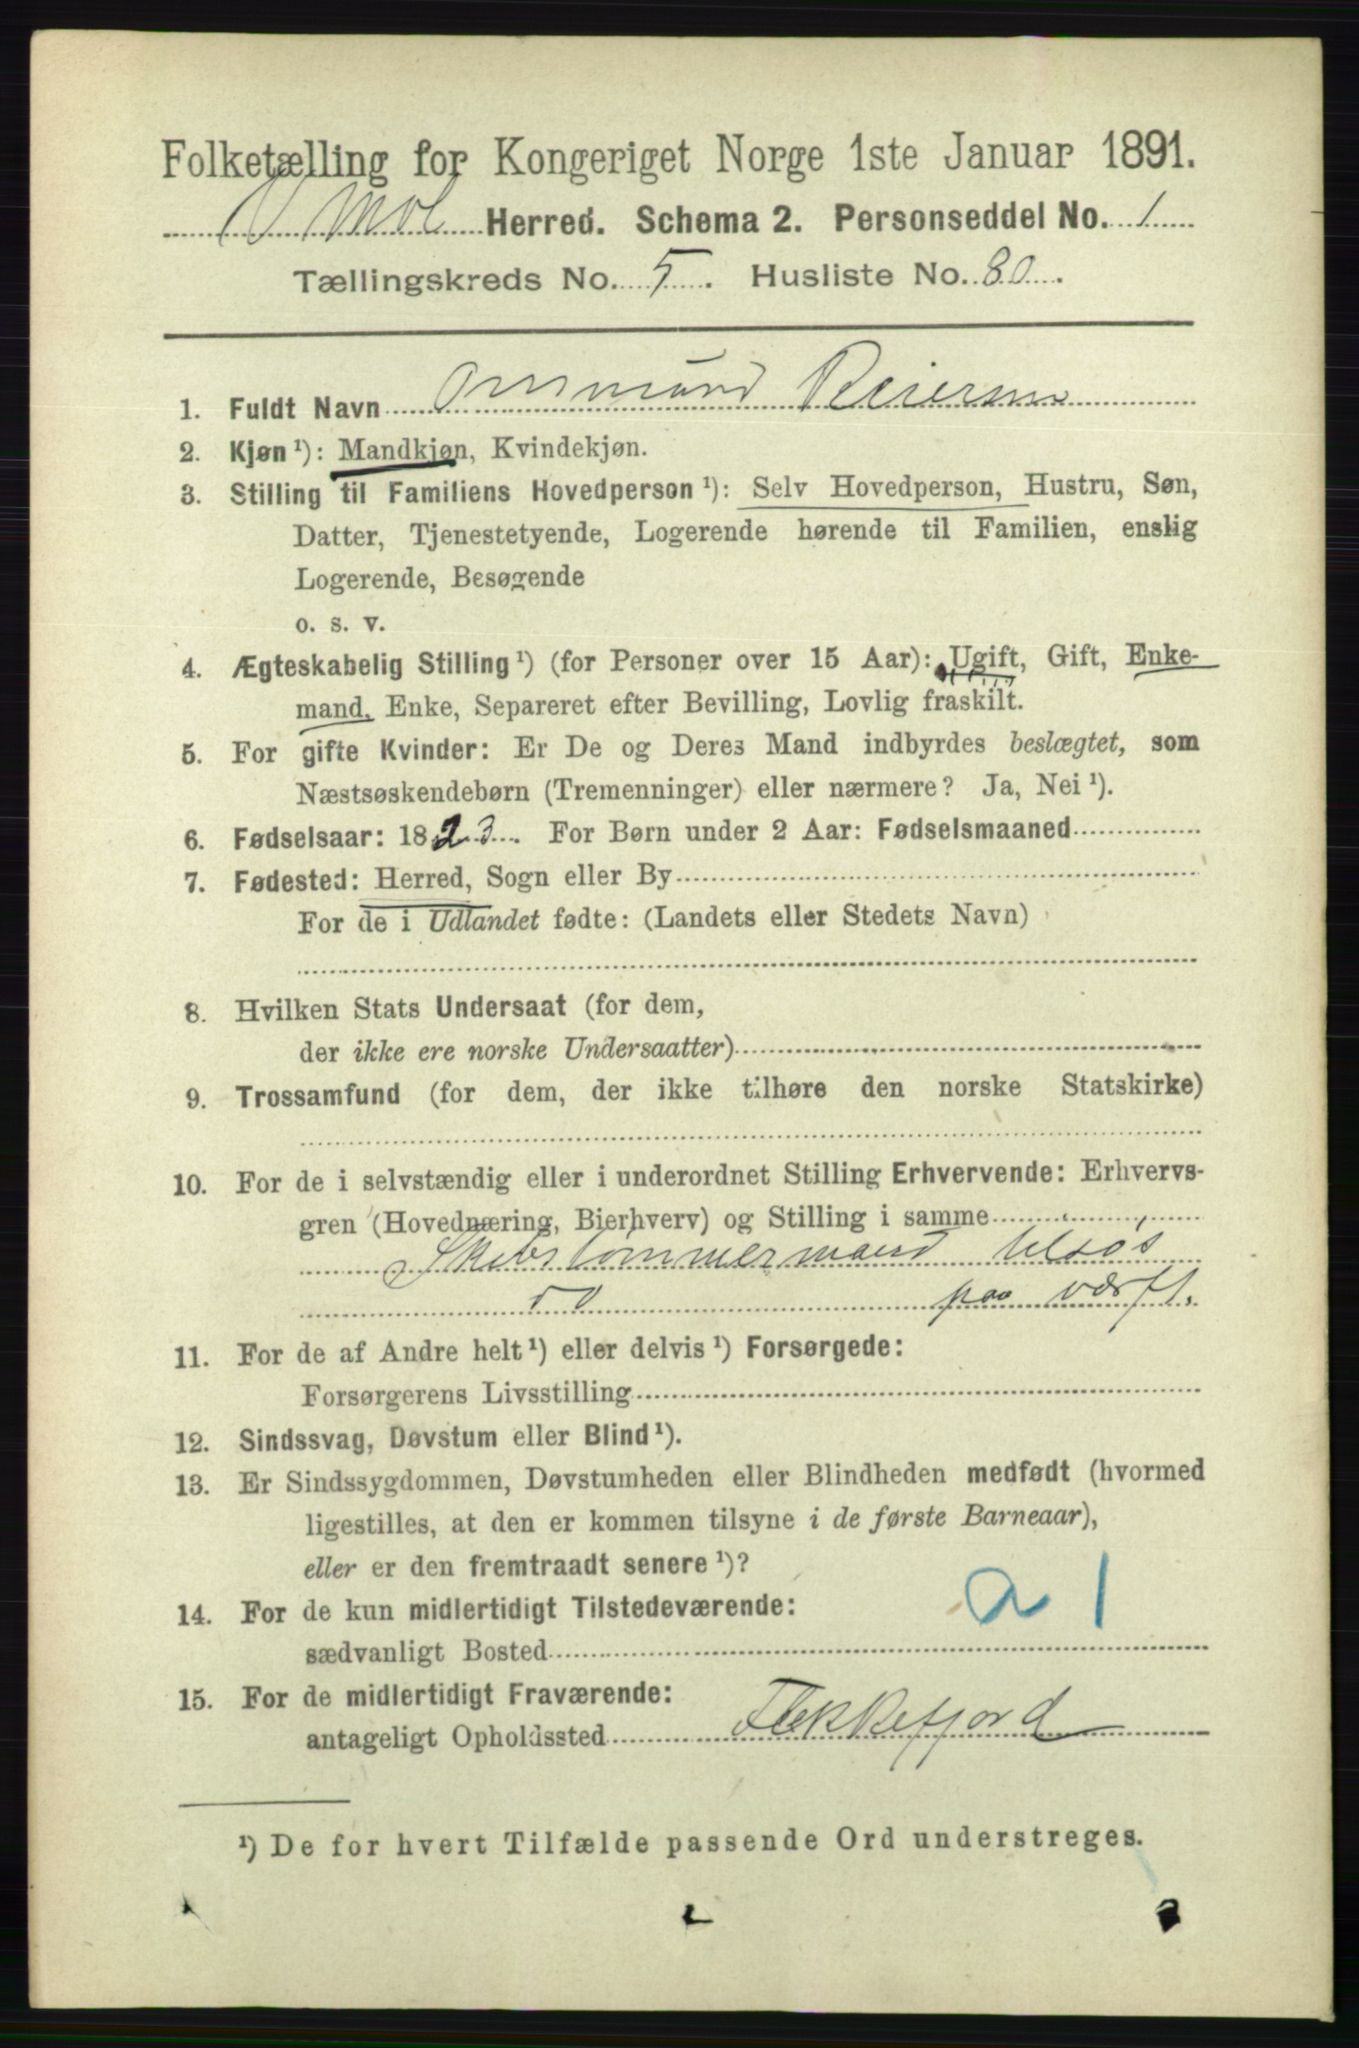 Folketælling for Kongeriget Norge 1ste Januar 1891.
V Mol Herred. Schema 2. Personseddel No. 1
Tællingskreds No. 5. Husliste No. 80.
1. Fuldt Navn Osmund Reiersen
2. Kjøn ¹): Mandkjøn, Kvindekjøn.
3. Stilling til Familiens Hovedperson ¹): Selv Hovedperson, Hustru, Søn,
Datter, Tjenestetyende, Logerende hørende til Familien, enslig
Logerende, Besøgende
o. s. v.
4. Ægteskabelig Stilling ¹) (for Personer over 15 Aar): Ugift, Gift, Enke-
mand, Enke, Separeret efter Bevilling, Lovlig fraskilt.
5. For gifte Kvinder: Er De og Deres Mand indbyrdes beslægtet, som
Næstsøskendebørn (Tremenninger) eller nærmere? Ja, Nei ¹).
6. Fødselsaar: 1823. For Børn under 2 Aar: Fødselsmaaned
7. Fødested: Herred, Sogn eller By
For de i Udlandet fødte: (Landets eller Stedets Navn)
8. Hvilken Stats Undersaat (for dem,
der ikke ere norske Undersaatter)
9. Trossamfund (for dem, der ikke tilhøre den norske Statskirke)
10. For de i selvstændig eller i underordnet Stilling Erhvervende: Erhvervs-
gren (Hovednæring, Bierhverv) og Stilling i samme
Skibstømmermand tilsøs
do paa værft.
11. For de af Andre helt ¹) eller delvis ¹) Forsørgede:
Forsørgerens Livsstilling
12. Sindssvag, Døvstum eller Blind ¹).
13. Er Sindssygdommen, Døvstumheden eller Blindheden medfødt (hvormed
ligestilles, at den er kommen tilsyne i de første Barneaar),
eller er den fremtraadt senere ¹)?
a 1
14. For de kun midlertidigt Tilstedeværende:
sædvanligt Bosted
15. For de midlertidigt Fraværende:
antageligt Opholdssted Flekkefjord
¹) De for hvert Tilfælde passende Ord understreges.